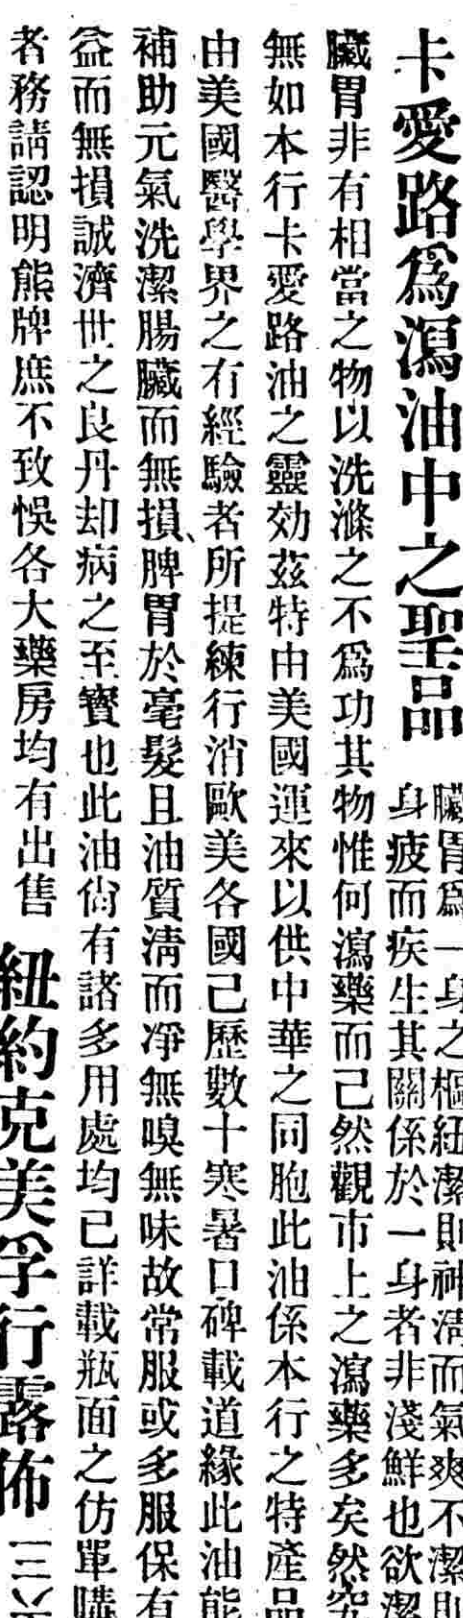 卡愛路爲瀉油中之聖品
臟胃爲一身之樞紐潔則神清而氣爽不潔則
身疲而疾生其關係於一身者非淺鮮也欲潔
臟胃非有相當之物以洗滌之不爲功其物惟何瀉藥而已然觀市上之瀉藥多矣然究
無如本行卡愛路油之靈効茲特由美國運來以供中華之同胞此油係本行之特產品
由美國醫學界之有經驗者所提練行消歐美各國己歷數十寒暑口碑載道緣此油能
補助元氣洗潔腸臟而無損、脾胃於毫髮且油質清而凈無嗅無味故常服或多服保有
益而無損誠濟世之良丹却病之至寶也此油尙有諸多用處均已詳載瓶面之仿單購
者務請認明熊牌庶不致悞各大藥房均有出售
紐約克美孚行露佈